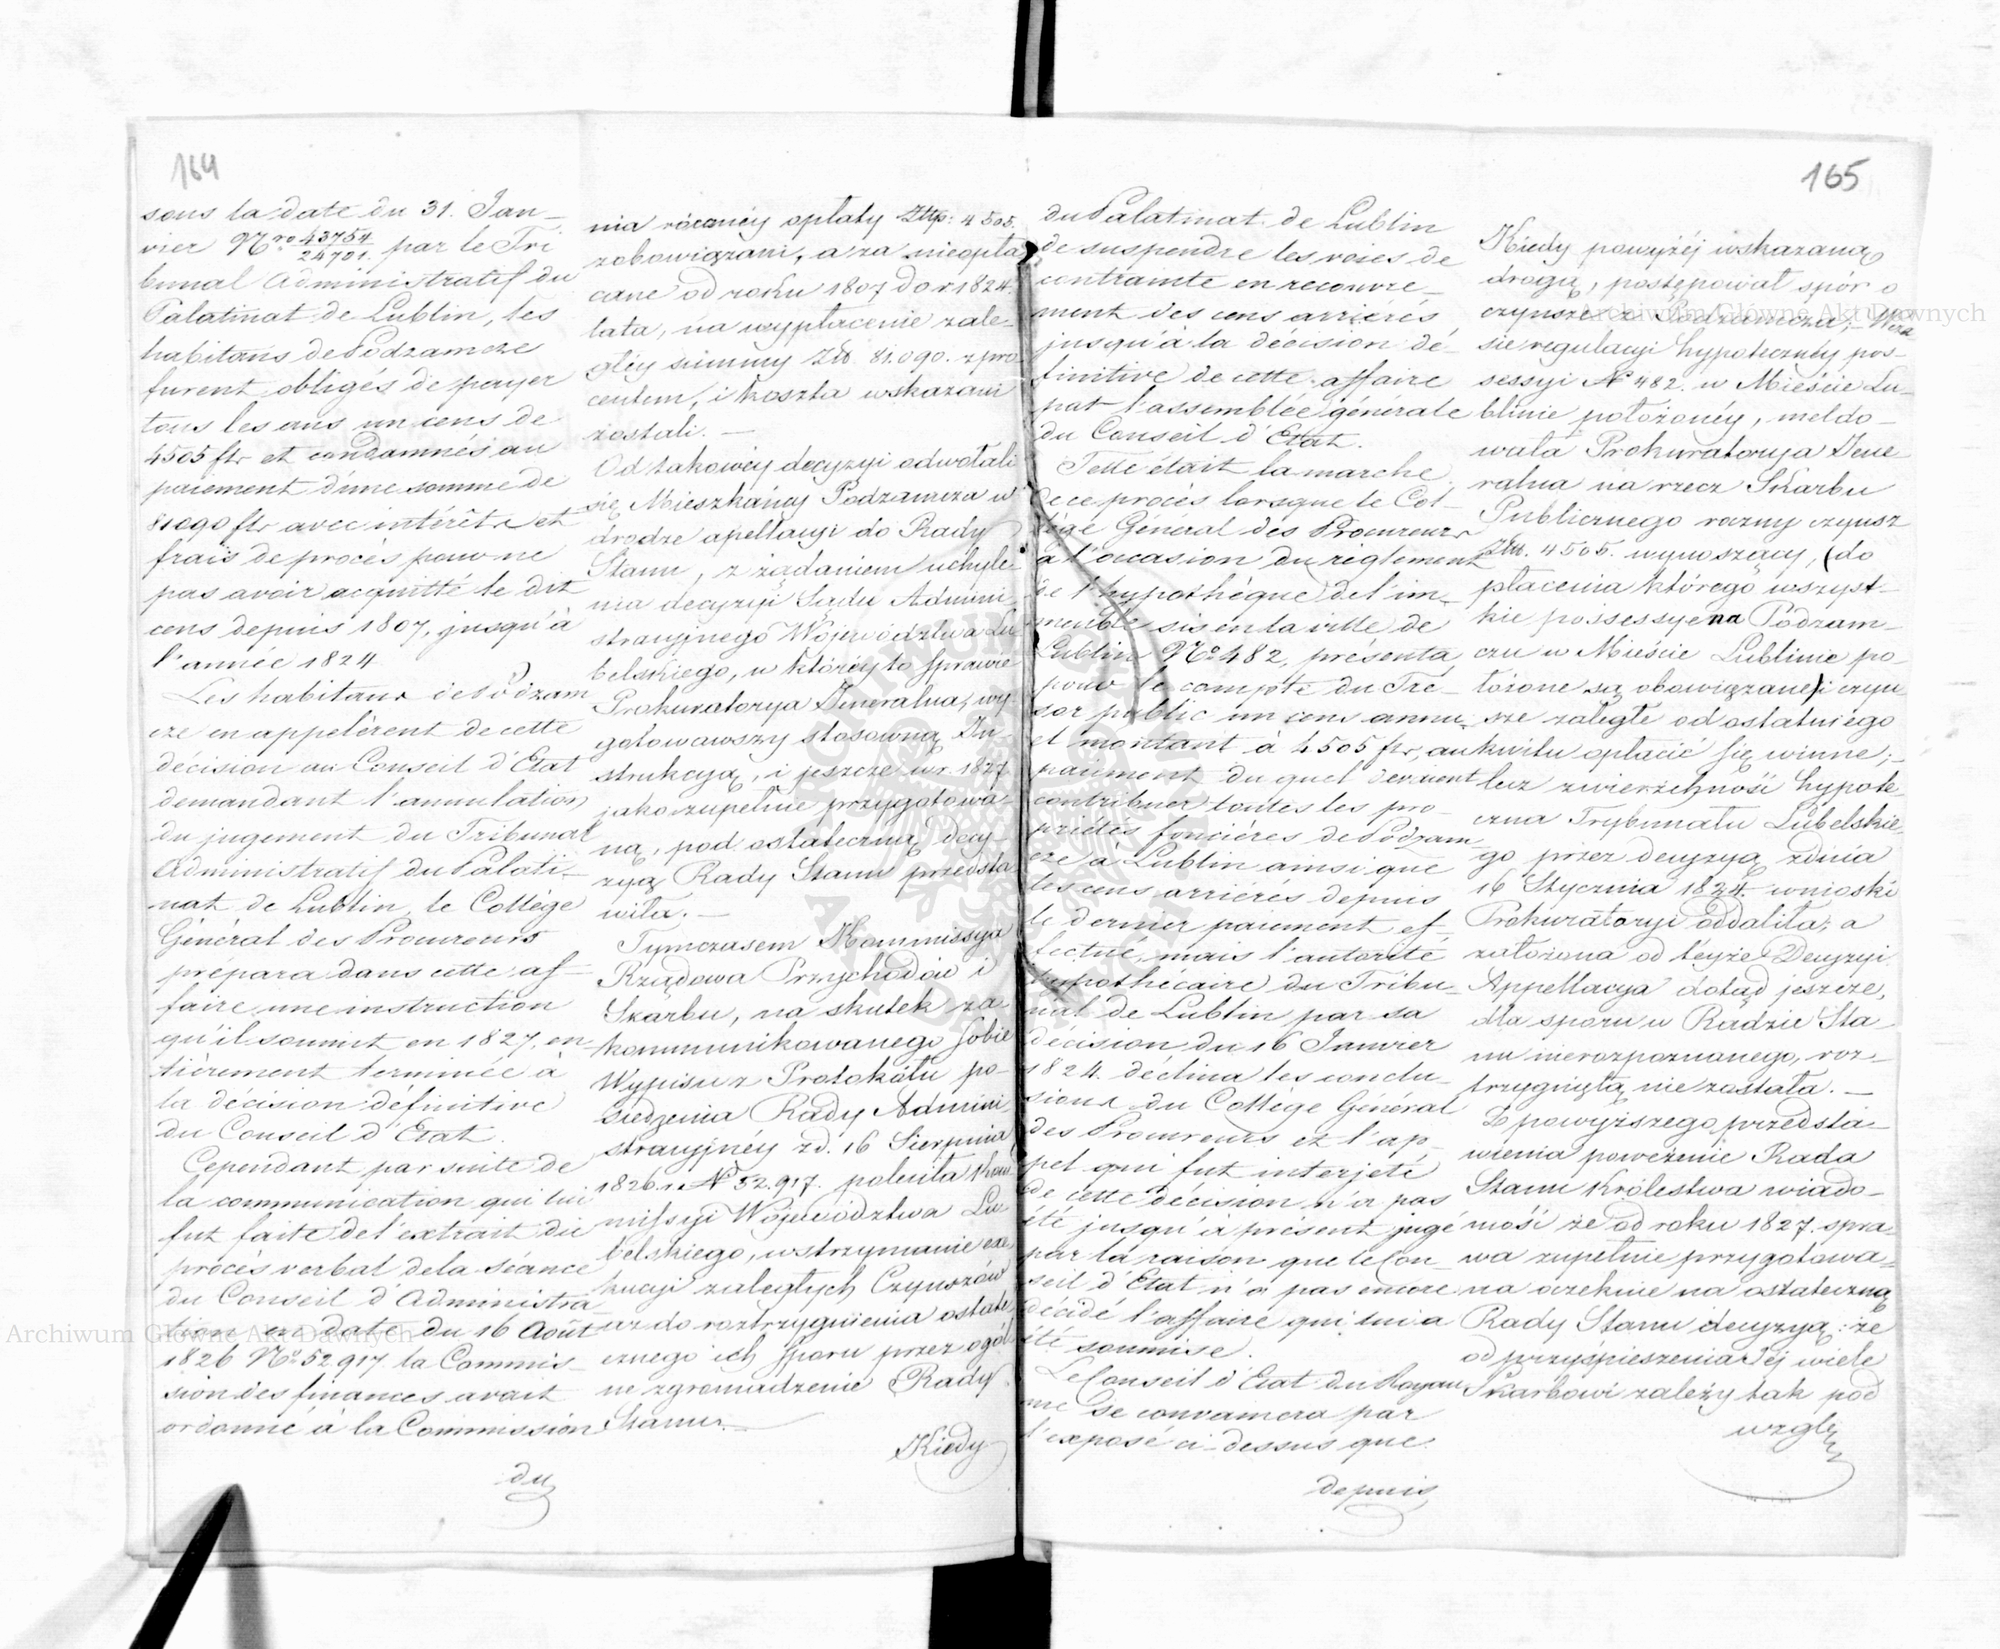 164
sous la date du 31. Jan-
vier Nro 43754/24701. par le Tri
bunal Administratif du
Palatinat de Lublin, les
habitans de Podzamcze
furent obligés de payer
tous les ans un cens de
4505 flr et condamnés au
paiement d'une somme de
81090 flr avec intérêts et
frais de procès pour ne
pas avoir acquitté le dit
cens depuis 1807, jusqu'à
l'année 1824
Les habitans de Podzam
cze en appelèrent de cette
décision au Conseil d'Etat
demandant l'annulation
du jugement du Tribunal
Administratif du Palati-
nat de Lublin, le Collège
Général des Procureurs
prépara dans cette af-
faire une instruction
qu'il soumit en 1827. en
tièrement terminée à
la décision définitive
du Conseil d'Etat.
Cependant par suite de
la communication qui lui
fut faite de l'extrait du
procès verbal de la séance
du Conseil d'Administra
tion en date du 16 Août
1826 No 52917 la Commis-
sion des finances avait
ordonné à la Commission
du
nia roczney opłaty Złtp: 4505.
zobowiązani, a za nieopła
cane od roku 1807 do r 1824.
lata, na wypłacenie zale-
głéy summy Złt. 81.090. z pro
centem, i koszta wskazani
zostali. —
Od takowéy decyzyi odwołali
się Mieszkańcy Podzamcza w
drodze apellacyi do Rady
Stanu, z żądaniem uchyle-
nia decyzyi Sądu Admini
stracyjnego Województwa Lu
belskiego, w któréy to sprawie
Prokuratorya Jeneralna, wy
gotowawszy stosowną In-
strukcyą, i jeszcze w r. 1827
jako zupełnie przygotowa-
ną, pod ostateczną decy-
zyą Rady Stanu przedsta
wiła. —
Tymczasem Kommissya
Rządowa Przychodów i
Skarbu, na skutek za
kommunikowanego sobie
Wypisu z Protokółu po-
siedzenia Rady Admini
stracyjnéy z d. 16 Sierpnia
1826 r. No 52.917. poleciła Kom
missyi Województwa Lu
belskiego, wstrzymanie exe
kucyi zaległych Czynszów
aż do rozstrzygnienia ostate
cznego ich sporu przez ogól
ne zgromadzenie Rady
Stanu. —
Kiedy
165
du Palatinat de Lublin
de suspendre les voies de
contrainte en recouvre-
ment des cens arriérés
jusqu'à la décision dé-
finitive de cette affaire
par l'assemblée générale
du Conseil d'Etat.
Telle était la marche
de ce procès lorsque le Col-
lège Général des Procureurs
à l'occasion du règlement
de l'hypothèque de l'im-
meuble sis en la ville de
Lublin No 482, présenta
pour le compte du Tré-
sor public un cens annu-
el montant à 4505 flr, au
paiement du quel devaient
contribuer toutes les pro-
priétés foncières de Podzam
cze à Lublin ainsi que
les cens arriérés depuis
le dernier paiement ef
fectué, mais l'autorité
hypothécaire du Tribu-
nal de Lublin par sa
décision du 16 Janvier
1824. déclina les conclu-
sions du Collège Général
des Procureurs et l'ap-
pel qui fut interjeté
de cette décision n'a pas
été jusqu'à présent jugé
par la raison que le Con-
seil d'Etat n'a pas encore
décidé l'affaire qui lui a
été soumise.
Le Conseil d'Etat du Royau
me se convaincra par
l'exposé ci-dessus que
depuis
Kiedy powyżéj wskazaną
drogą, postępował spór o
czynsze z Podzamcza, — W cza
sie regulacyi hypoteczney pos-
sessyi No 482. w Mieście Lu-
blinie położonéy, meldo-
wała Prokuratorya Jene
ralna na rzecz Skarbu
Publicznego roczny czynsz
Złt. 4505. wynoszący, (do
płacenia którego wszyst-
kie possessye na Podzam-
czu w Mieście Lublinie po-
łożone są obowiązane) i czyn
sze zaległe od ostatniego
kwitu opłacić się winne; —
lecz zwierzchność hypote
czna Trybunału Lubelskie
go przez decyzyą z dnia
16 Stycznia 1824 wnioski
Prokuratoryi oddaliła; a
założona od teyże Decyzyi
Appellacya dotąd jeszcze,
dla sporu w Radzie Sta
nu nierozpoznanego, roz-
trzygniętą nie została. —
Z powyższego przedsta-
wienia poweźmie Rada
Stanu Królestwa wiado-
mość że od roku 1827. spra-
wa zupełnie przygotowa-
na oczekuie na ostateczną
Rady Stanu decyzyą: że
od przyśpieszenia Jéj wiele
Skarbowi zależy tak pod
wzglę
Archiwum Główne Akt Dawnych
Archiwum Główne Akt Dawnych